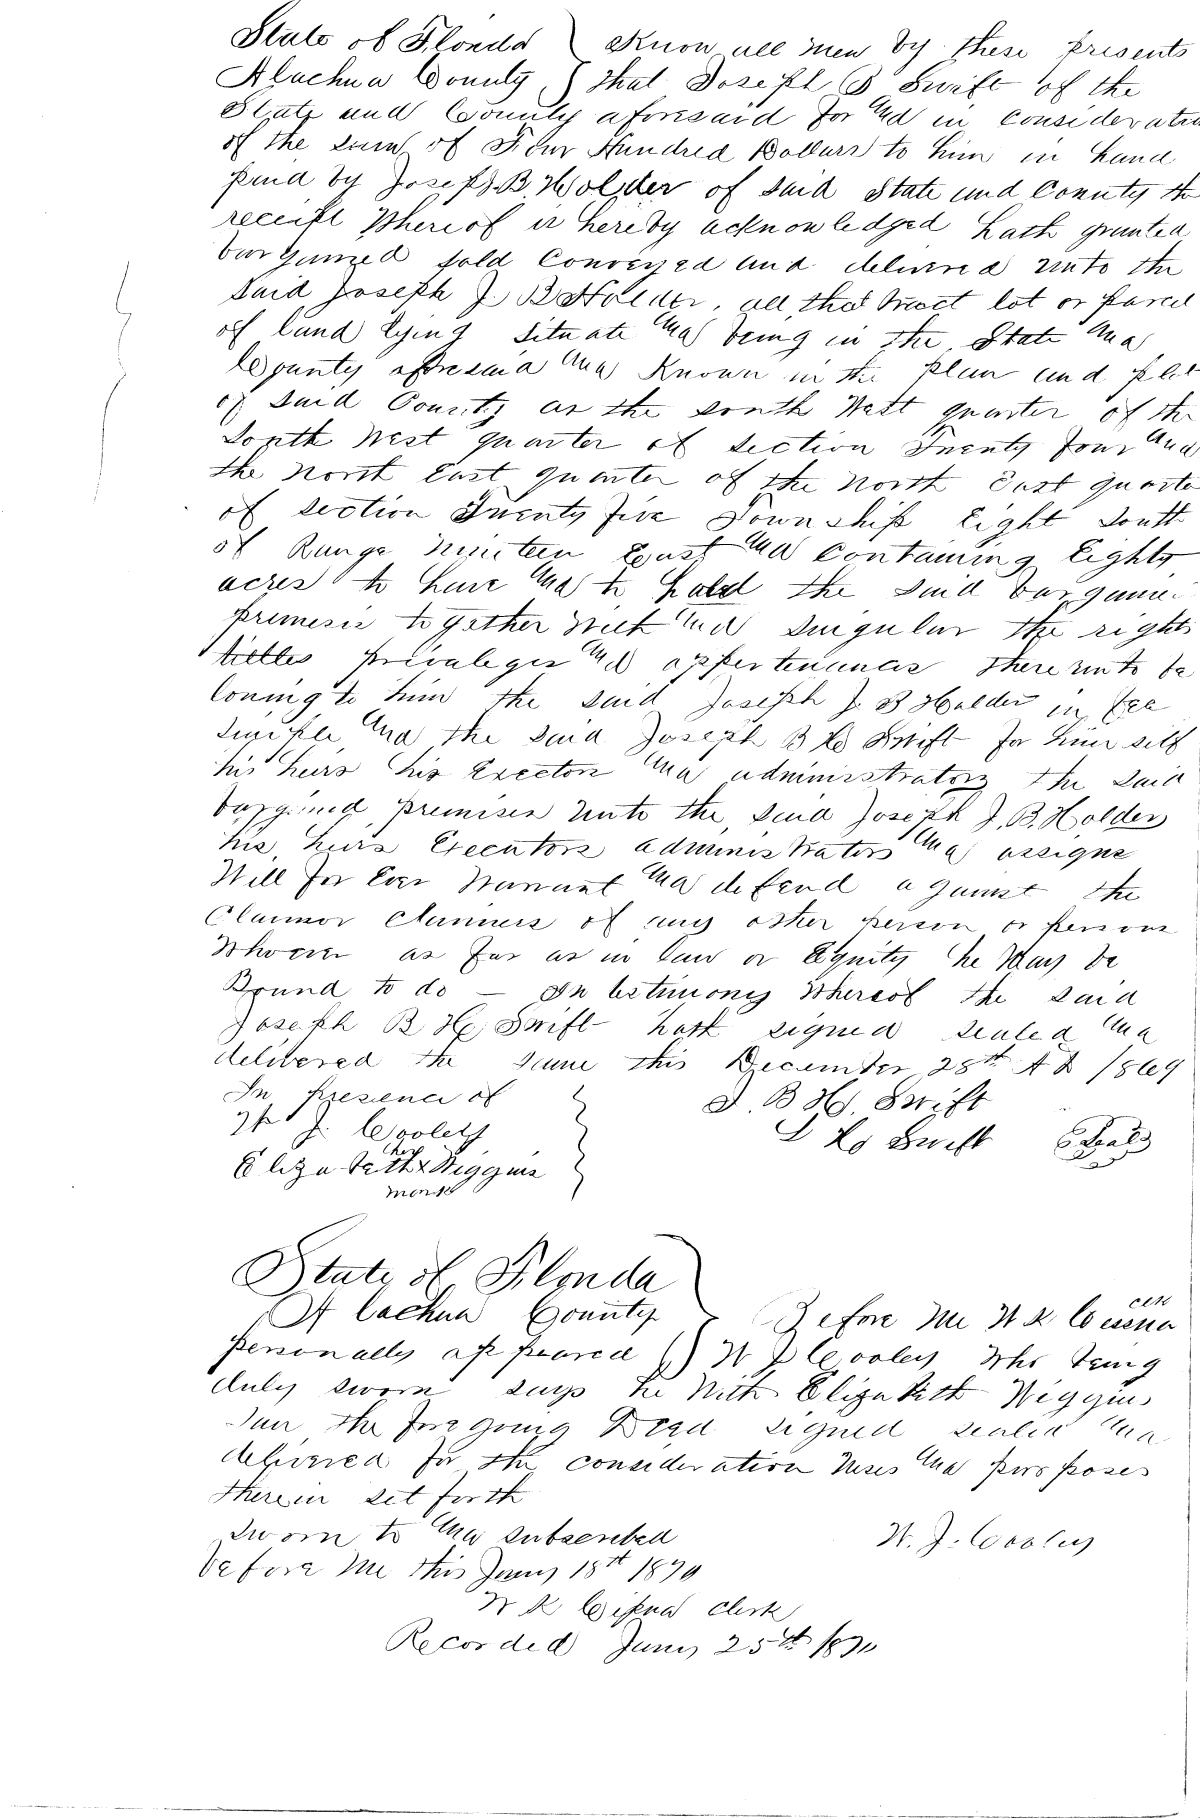 State of Florida } Know all men by these presents
Alachua County } that Joseph B Swift of the
State and County aforesaid for and in consideratio
of the sum of Four Hundred Dollars to him in hand
paid by Joseph J. B. Holder of said State and County the
receipt whereof is hereby acknowledged hath granted
bargained sold conveyed and delivered unto the
said Joseph J. B Holder, all that tract lot or parcel
of land lying situate and being in the State and
County aforesaid and known in the plan and plat
of said County as the South West quarter of the
South West quarter of section Twenty four and
the North East quarter of the North East quarte
of section Twenty five Township Eight South
of Range nineteen East and containing Eighty
acres to have and to hold the said bargained
premesis together with and singular the rights
titles privaleges and appertenances there unto be
loning to him the said Joseph J. B Holder in fee
simple and the said Joseph B H Swift for him self
his heirs his Exectors and administrators the said
bargined premises unto the said Joseph J. B. Holder
his heirs Executors administrators and assigns
Will for Ever Warrant and defend against the
Claimor claimers of any other person or persons
Whoever as far as in law or Equity he May be
Bound to do — In testimony Whereof the said
Joseph B H Swift hath signed sealed and
delivered the same this December 28th A D 1869
In presence of J. B H. Swift
W J. Cooley S H Swift Seal
her
Elizabeth x Wiggins
mark
State of Florida
Alachua County } Before Me W K Cessna
personally appeared W J Cooley Who being
duly sworn says he With Elizabeth Wiggins
saw the foregoing Deed signed sealed and
delivered for the consideration Uses and purposes
therein set forth
Sworn to and subscribed W. J. Cooley
before me this Jany 18th 1870
W K Cessna clerk
Recorded Jany 25th 1870